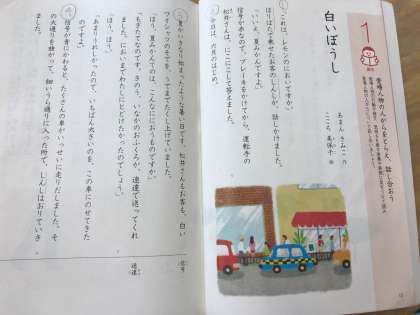 1
登場人物の人がらをとらえ、話し合おう
白いぼうし
あまん きみこ 作
「これは、レモンのにおいですか。」
ほりばたで乗せたお客のしんしが、話しかけました。
「いいえ、夏みかんですよ。」
信号が赤なので、ブレーキをかけてから、運転手の
松井さんは、にこにこして答えました。
今日は、六月のはじめ。
夏がいきなり始まったような暑い日です。松井さんもお客も、白い
ワイシャツのそでを、うでまでたくし上げていました。
「ほう、夏みかんてのは、こんなににおうものですか。」
「もぎたてなのです。きのう、いなかのおふくろが、速達で送ってくれ
ました。においまでわたしにとどけたかったのでしょう。」
「ほう、ほう。」
「あまりうれしかったので、いちばん大きいのを、この車にのせてきた
のですよ。」
信号が青にかわると、たくさんの車がいっせいに走りだしました。そ
の大通りを曲がって、細いうら通りに入った所で、しんしはおりていき
信号
速達